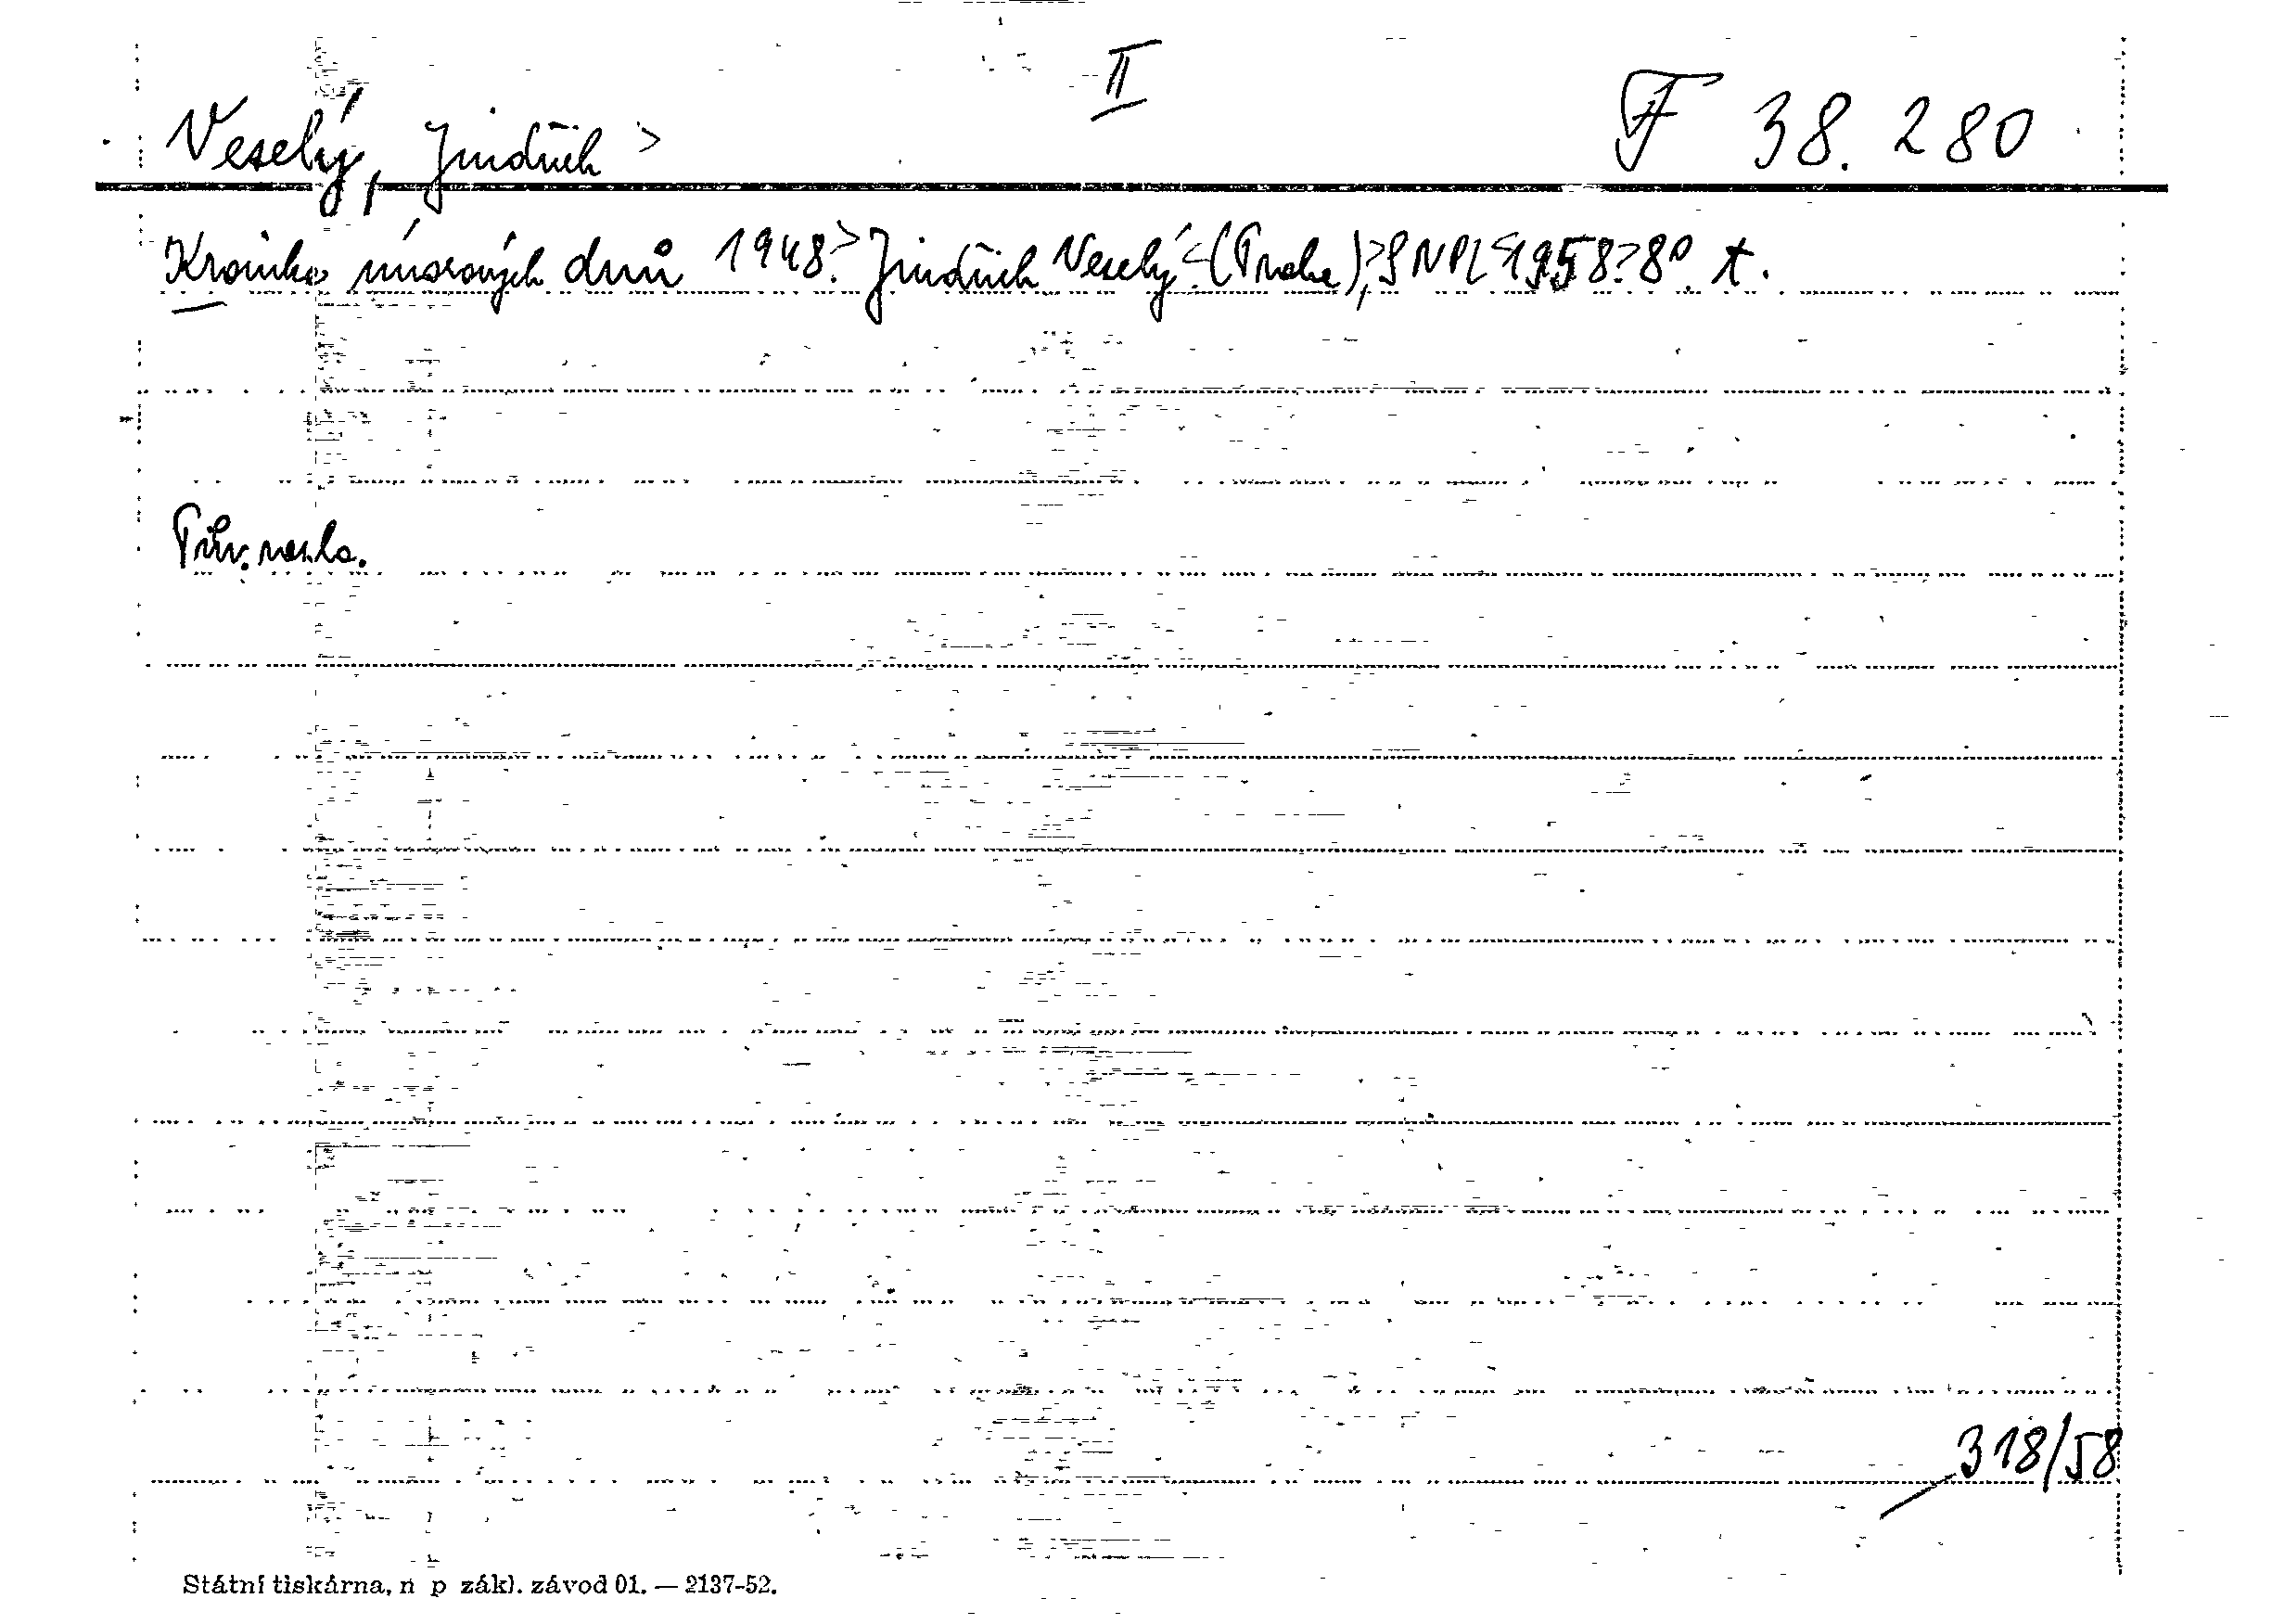 II
Veselý, Jindřich > F 38.280
Kronika únorových dnů 1948.> Jindřich Veselý.<(Praha),>SNPL<1958>8° t.
Přív. vazba.
318/58
Státní tiskárna, n p zákl. závod 01. — 2137-52.